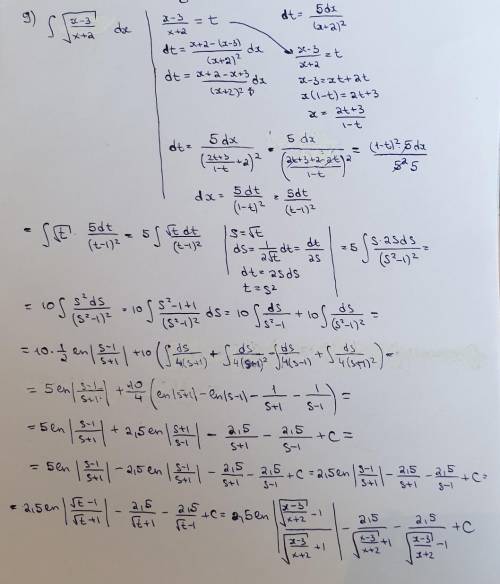 g) ∫ √((x-3)/(x+2)) dx | (x-3)/(x+2) = t    dt = 5dx/(x+2)²
dt = (x+2-(x-3))/(x+2)² dx    (x-3)/(x+2) = t
dt = (x+2-x+3)/(x+2)² dx    x-3 = xt+2t
x(1-t) = 2t+3
x = (2t+3)/(1-t)
dt = 5dx/((2t+3)/(1-t)+2)² = 5dx/((2t+3+2-2t)/(1-t))² = (1-t)²·5dx/5² 5
dx = 5dt/(1-t)² = 5dt/(t-1)²
= ∫√t · 5dt/(t-1)² = 5∫ √t dt/(t-1)² | s=√t    ds = 1/(2√t) dt = dt/2s    dt = 2sds    t = s² | = 5∫ s·2sds/(s²-1)² =
= 10∫ s²ds/(s²-1)² = 10∫ (s²-1+1)/(s²-1)² ds = 10∫ ds/(s²-1) + 10∫ ds/(s²-1)² =
= 10·1/2 ln|(s-1)/(s+1)| + 10(∫ ds/4(s+1) + ∫ ds/4(s+1)² - ∫ ds/4(s-1) + ∫ ds/4(s-1)²) =
= 5ln|(s-1)/(s+1)| + 10/4 (ln|s+1| - ln|s-1| - 1/(s+1) - 1/(s-1)) =
= 5ln|(s-1)/(s+1)| + 2,5ln|(s+1)/(s-1)| - 2,5/(s+1) - 2,5/(s-1) + C =
= 5ln|(s-1)/(s+1)| - 2,5ln|(s-1)/(s+1)| - 2,5/(s+1) - 2,5/(s-1) + C = 2,5ln|(s-1)/(s+1)| - 2,5/(s+1) - 2,5/(s-1) + C =
= 2,5ln|(√t-1)/(√t+1)| - 2,5/(√t+1) - 2,5/(√t-1) + C = 2,5ln|(√((x-3)/(x+2)) -1)/(√((x-3)/(x+2)) +1)| - 2,5/(√((x-3)/(x+2)) +1) - 2,5/(√((x-3)/(x+2)) -1) + C